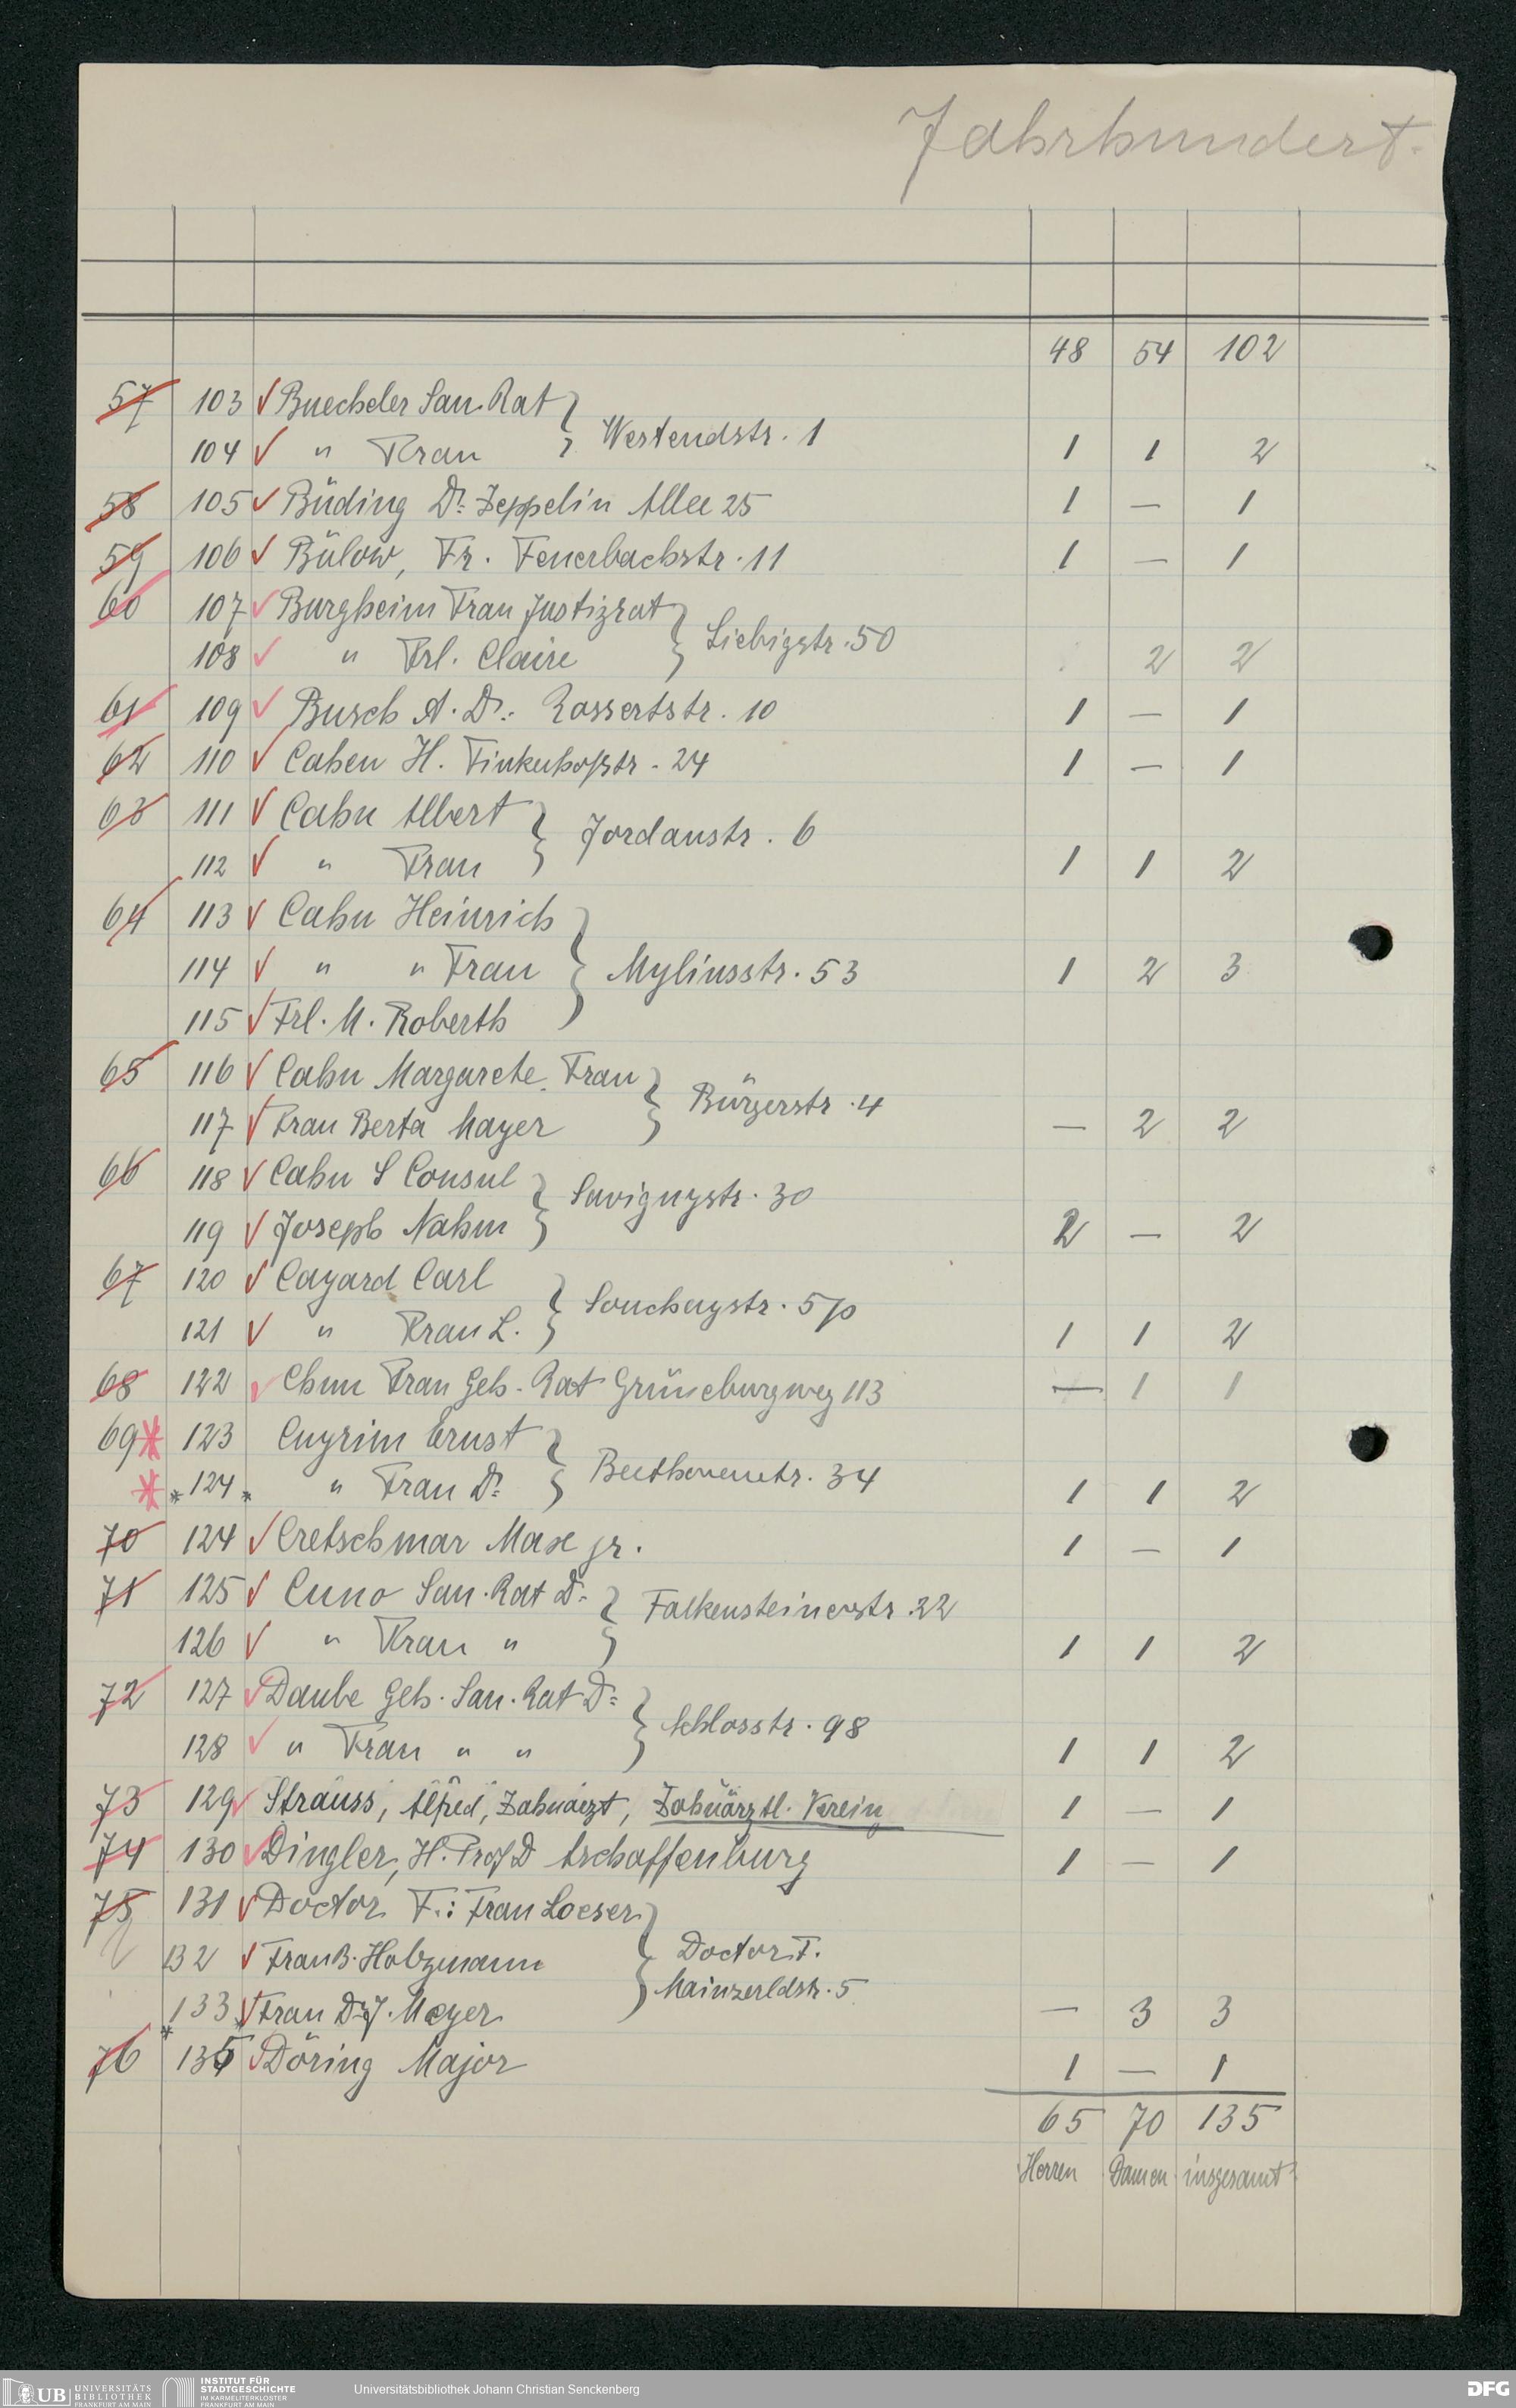 Jahrhundert.
48 54 102
57 103 Buecheler San. Rat
Westendstr. 1
104 " Frau 1 1 2
58 105 Büding Dr. Zeppelin Allee 25 1 — 1
59 106 Bülow, Fr. Feuerbachstr. 11 1 — 1
60 107 Burgheim Frau Justizrat
Liebigstr. 50
108 " Frl. Claire 2 2
61 109 Busch A. Dr. Rossertstr. 10 1 — 1
62 110 Cahen H. Finkenhofstr. 24 1 — 1
63 111 Cahn Albert
Jordanstr. 6
112 " Frau 1 1 2
64 113 Cahn Heinrich
114 " " Frau Myliusstr. 53 1 2 3
115 Frl. M. Roberth
65 116 Cahn Margarete Frau
Bürgerstr. 4
117 Frau Berta Mayer — 2 2
66 118 Cahn S Consul
Savignystr. 30
119 Joseph Nahm 2 — 2
67 120 Cayard Carl
Souchaystr. 5p
121 " Frau L. 1 1 2
68 122 Chun Frau Geh. Rat Grüneburgweg 113 — 1 1
69* 123 Cuyrim Ernst
Beethovenstr. 34
* *124* " Frau Dr. 1 1 2
70 124 Cretschmar Max jr. 1 — 1
71 125 Cuno San. Rat Dr.
Falkensteinerstr. 22
126 " Frau " 1 1 2
72 127 Daube Geh. San. Rat Dr.
Schlosstr. 98
128 " Frau " " 1 1 2
73 129 Strauss, Alfred, Zahnarzt, Zahnärztl. Verein 1 — 1
74 130 Dingler, H. Prof D Aschaffenburg 1 — 1
75 131 Doctor F.: Frau Loeser
132 Frau B. Holzmann Doctor F.
Mainzerldstr. 5
*133 Frau Dr. J. Meyer — 3 3
76 135 Döring Major 1 — 1
65 70 135
Herren Damen insgesamt
UB UNIVERSITÄTS
BIBLIOTHEK
FRANKFURT AM MAIN
INSTITUT FÜR
STADTGESCHICHTE
IM KARMELITERKLOSTER
FRANKFURT AM MAIN
Universitätsbibliothek Johann Christian Senckenberg
DFG